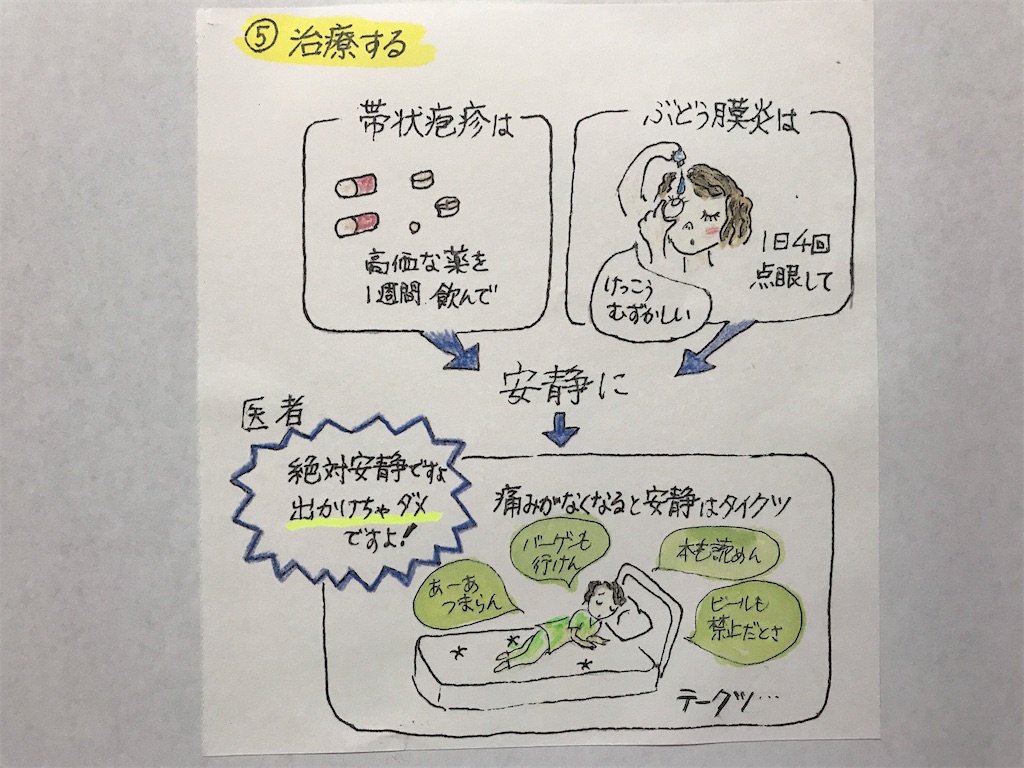 ⑤ 治療する
帯状疱疹は
高価な薬を
1週間 飲んで
ぶどう膜炎は
1日4回
点眼して
けっこう
むずかしい
安静に
医者
絶対安静ですよ
出かけちゃダメ
ですよ!
痛みがなくなると安静はタイクツ
あーあ
つまらん
バーゲンも
行けん
本も読めん
ビールも
禁止だとさ
テークツ…